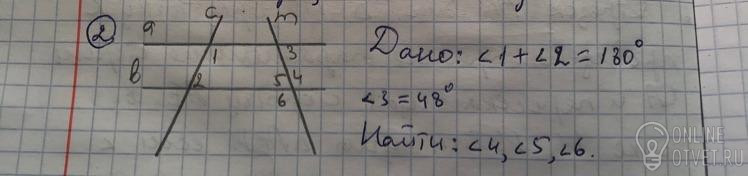 2 a c m
1 3
b 2 5 4
6
Дано: <1 + <2 = 180°
<3 = 48°
Найти: <4, <5, <6.
ONLINE
OTVET.RU